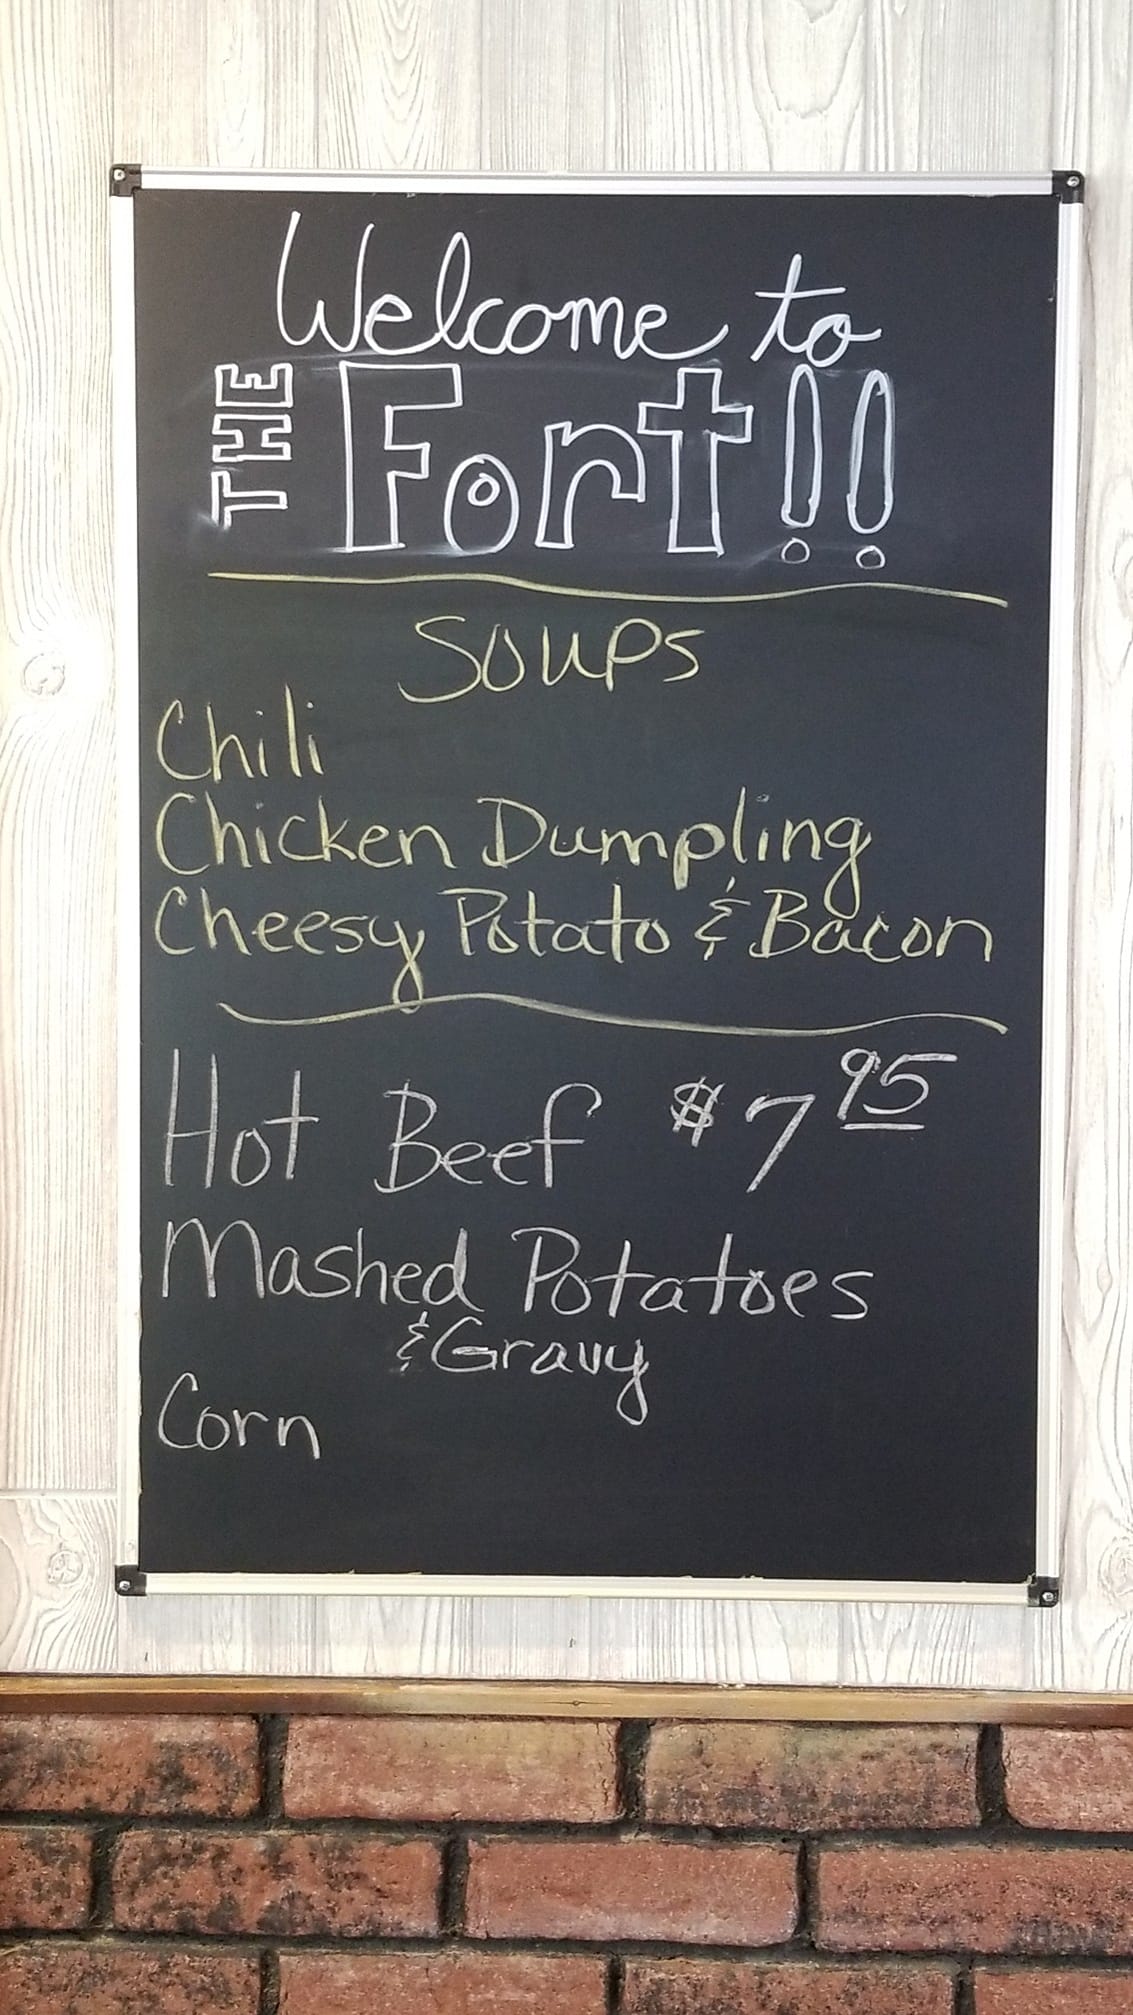 Welcome to
THE Fort!!
Soups
Chili
Chicken Dumpling
Cheesy Potato & Bacon
Hot Beef $7 95
Mashed Potatoes
& Gravy
Corn